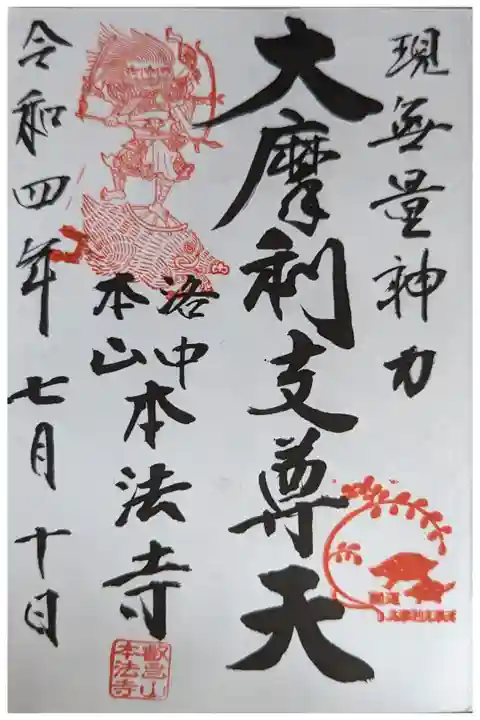 現無量神力
大摩利支尊天
洛中
本山
本法寺
令和四年七月十日
叡昌山
本法寺